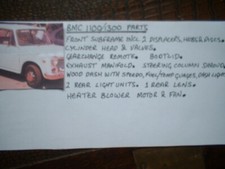 BMC 1100/1300 PARTS
FRONT SUBFRAME INCL. 2 DISPLACERS, HUBS & DISCS.
CYLINDER HEAD & VALVES.
GEARCHANGE REMOTE. BOOTLID.
EXHAUST MANIFOLD. STEERING COLUMN
WOOD DASH WITH SPEEDO, FUEL/TEMP GAUGES, DASH LIGHT
2 REAR LIGHT UNITS. 1 REAR LENS.
HEATER BLOWER MOTOR & FAN.